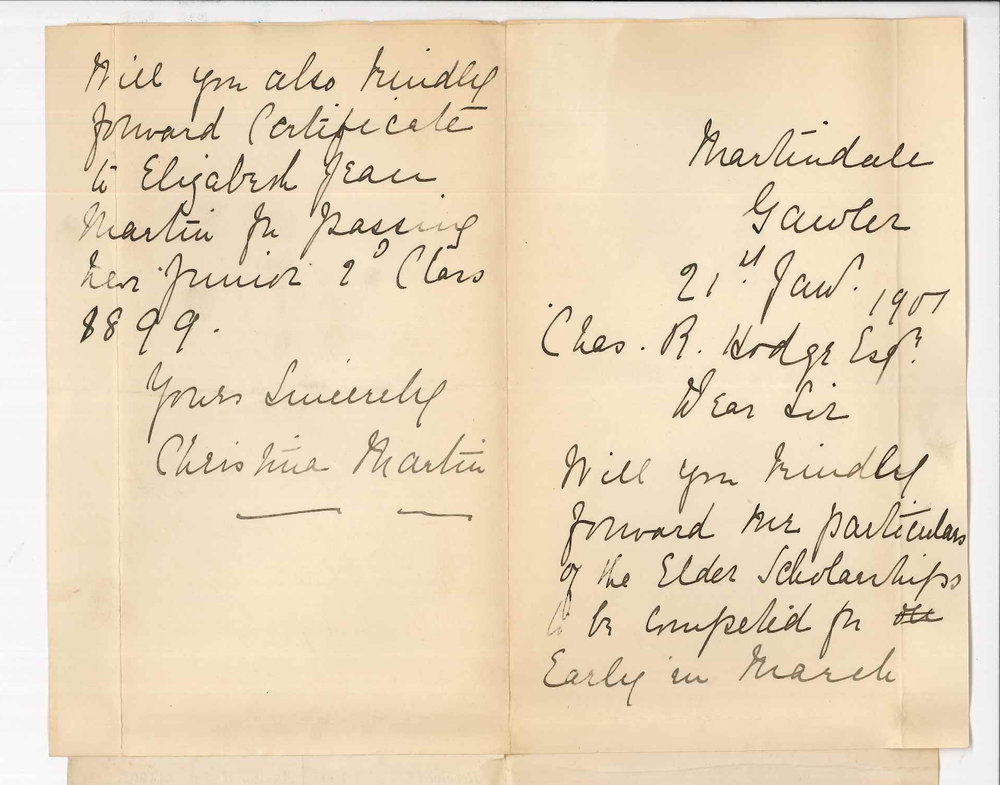 Martindale
Gawler
21st. Jany. 1901
Chas. R. Hodge Esqr.
Dear Sir
Will you kindly
forward me particulars
of the Elder Scholarships
to be competed for
Early in March
Will you also kindly
forward Certificate
to Elizabeth Jean
Martin for passing
her Junior 2D Class
1899.
Yours Sincerely
Christina Martin